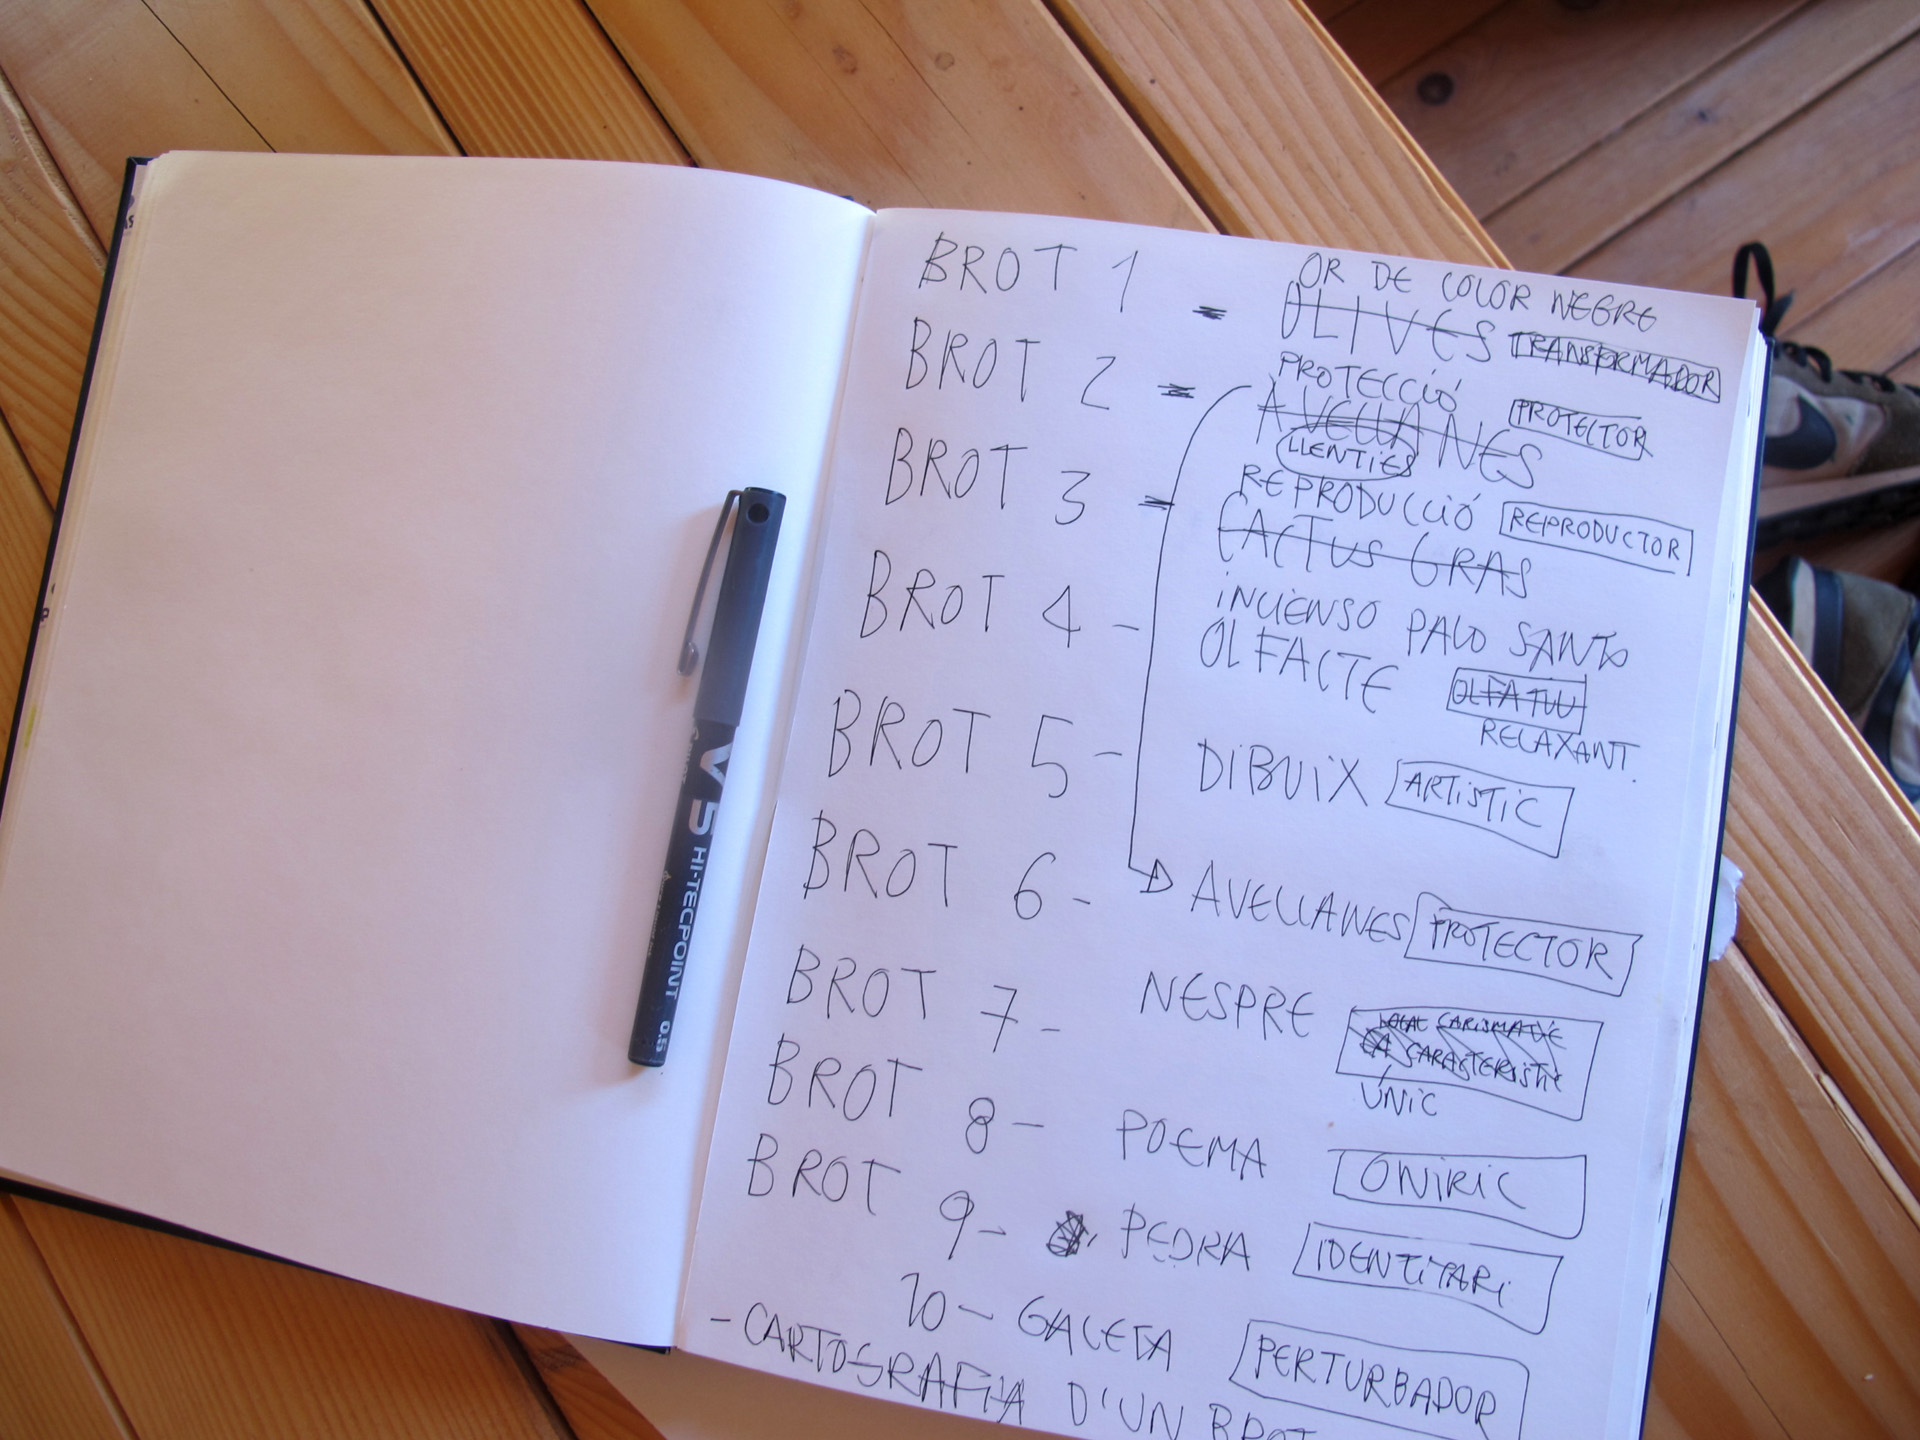 BROT 1 = OR DE COLOR NEGRE
OLIVES TRANSFORMADOR
BROT 2 = PROTECCIÓ
AVELLANES PROTECTOR
LLENTIES
BROT 3 = REPRODUCCIÓ REPRODUCTOR
CACTUS GRAS
BROT 4 - INCIENSO PALO SANTO
OLFACTE OLFATIU
RELAXANT.
BROT 5 - DIBUIX ARTISTIC
BROT 6 - AVELLANES PROTECTOR
BROT 7 - NESPRE
CARISMATIC
CARACTERISTIC
ÚNIC
BROT 8 - POEMA ONIRIC
BROT 9 - PEDRA IDENTITARI
10 - GALETA PERTURBADOR
- CARTOGRAFIA D'UN BROT
V5 HI-TECPOINT 0.5